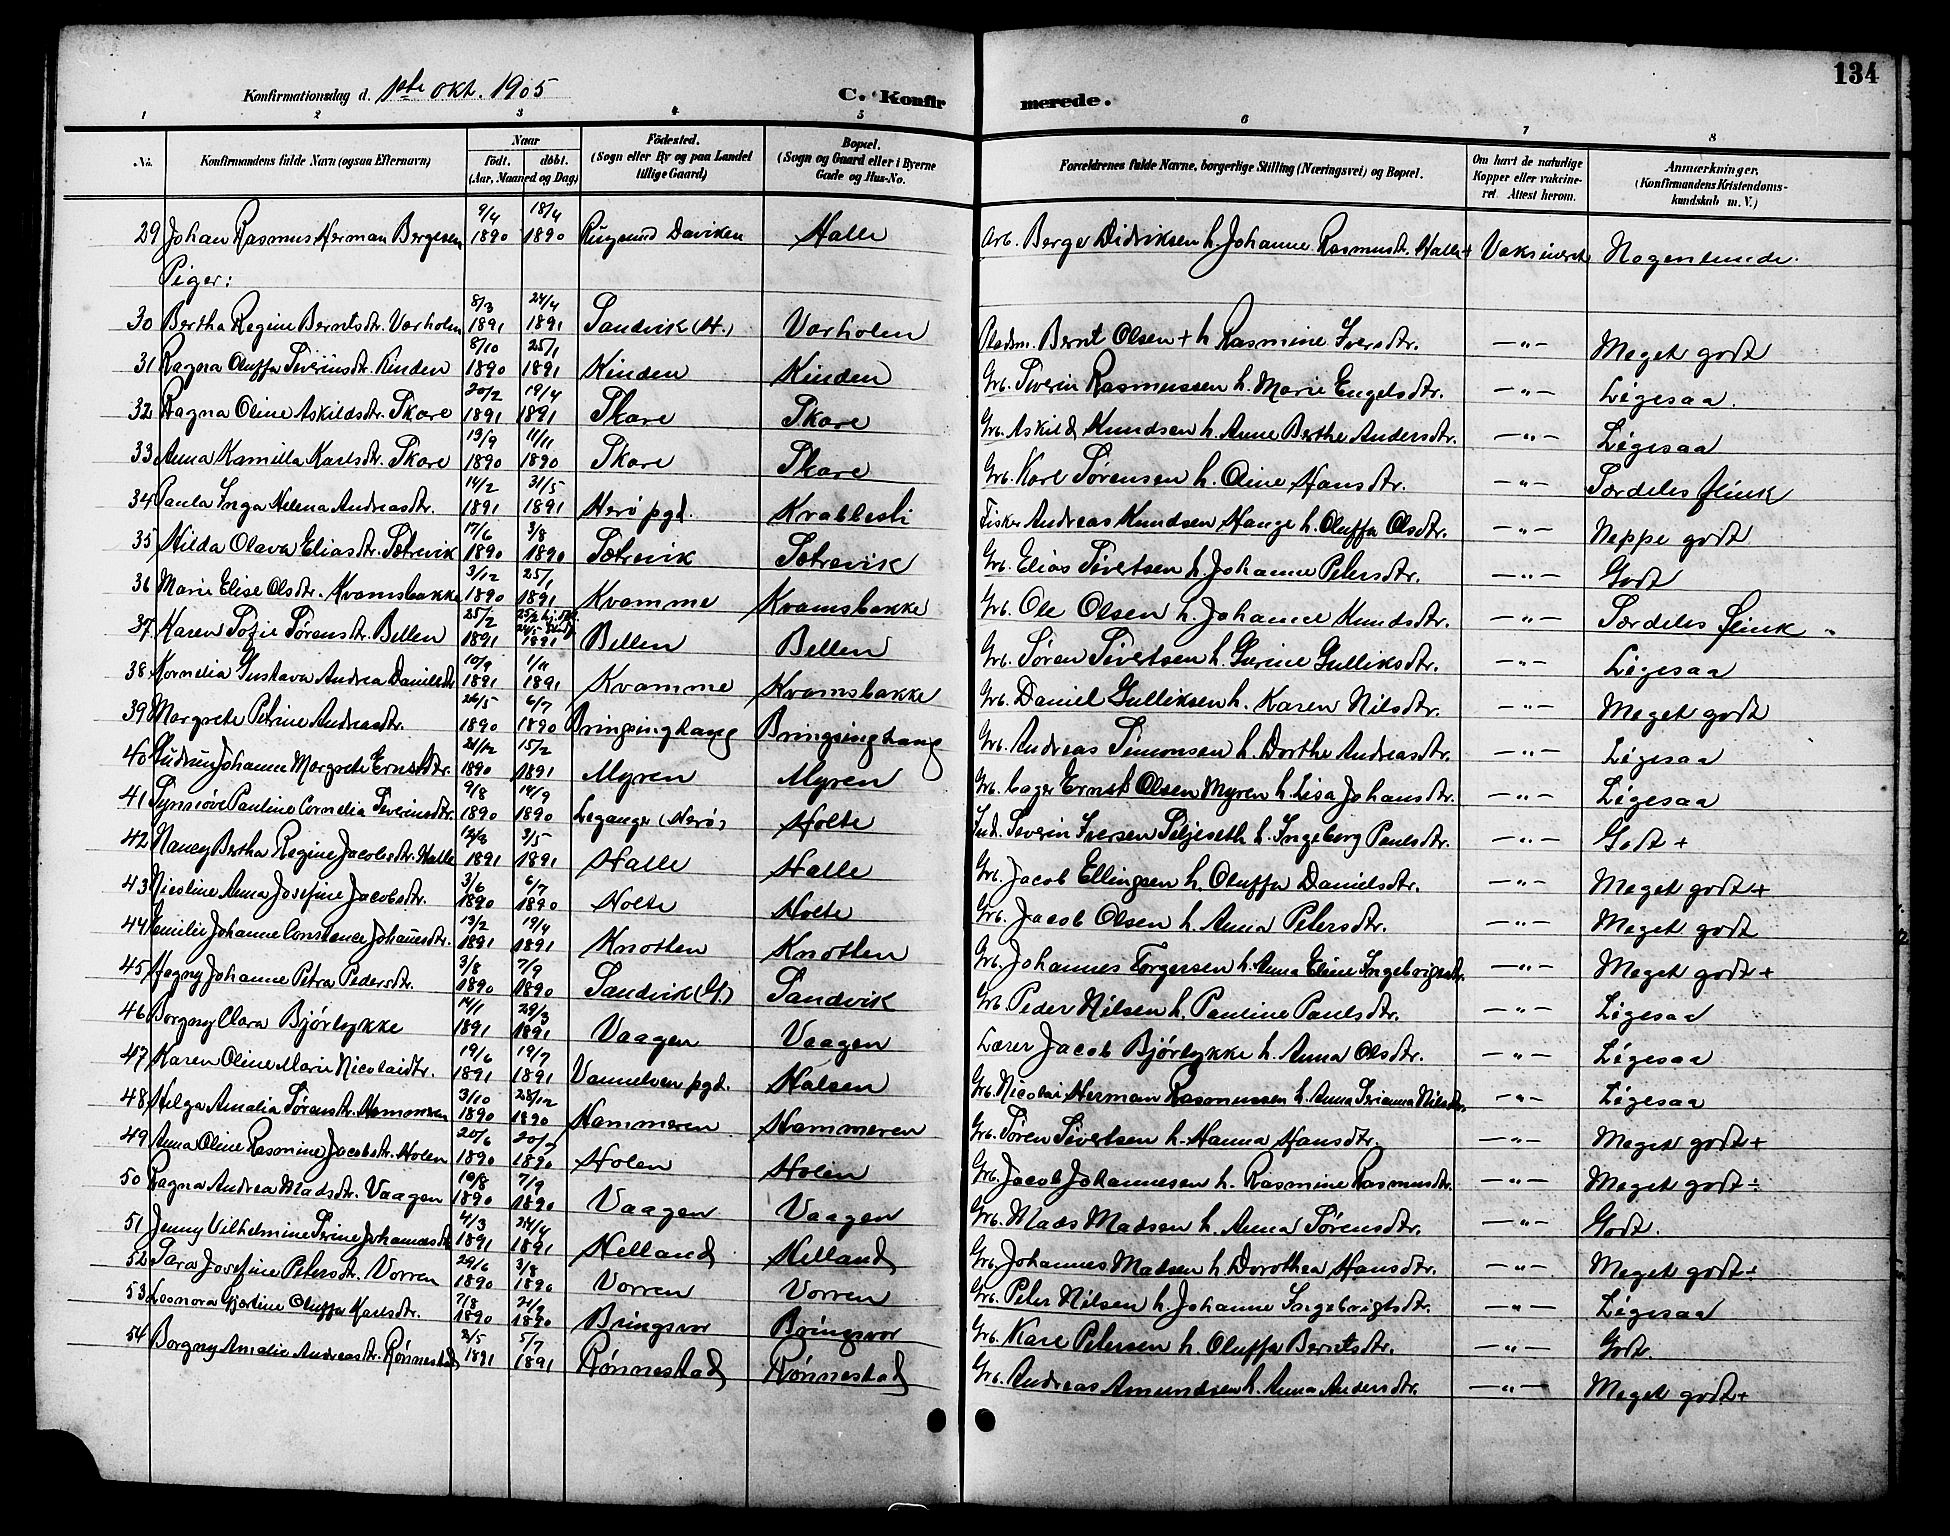 134
Konfirmationsdag d. 1ste okt. 1905 C. Konfirmerede.
1 2 3 4 5 6 7 8
No. Konfirmandens fulde Navn (ogsaa Efternavn) Naar født. døbt. (Aar, Maaned og Dag) Fødested. (Sogn eller By og paa Landet tillige Gaard) Bopæl. (Sogn og Gaard eller i Byerne Gade og Hus-No. Forældrenes fulde Navne, borgerlige Stilling (Næringsvei) og Bopæl. Om havt de naturlige Kopper eller vakcineret. Attest herom. Anmærkninger. (Konfirmandens Kristendomskundskab m. V.)
29 Johan Rasmus Herman Bergesen 9/4 1890 18/4 1890 Rugsund Daviken Halle Arb. Berge Didriksen h. Johanne Rasmusdtr. Halle+ Vaksineret Nogenlunde.
Piger:
30 Bertha Regine Berntsdtr. Varholm 8/3 1891 24/4 1891 Sandvik (H.) Varholen Pladsm. Bernt Olsen + h. Rasmine Iversdtr. —"— Meget godt
31 Ragna Oluffa Severinsdtr. Kinden 8/10 1890 25/1 1891 Kinden Kinden Grb. Severin Rasmussen h. Marie Engelsdtr. —"— Ligesaa.
32 Ragna Oline Askildsdtr. Skare 20/2 1891 19/4 1891 Skare Skare Grb. Askild Knudsen h. Anne Berthe Andersdtr. —"— Ligesaa
33 Anna Kamilla Karlsdtr. Skare 13/9 1890 11/11 1890 Skare Skare Grb. Karl Sørensen h. Oline Hansdtr. —"— Særdeles flink
34 Paula Inga Helena Andreasdtr. 14/2 1891 31/5 1891 Herø pgd. Kvabbesti Fisker Andreas Knudsen Hauge h. Oluffa Olsdtr. —"— Neppe godt
35 Hilda Olava Eliasdtr. Sætrevik 17/6 1890 3/8 1890 Sætrevik Sætrevik Grb. Elias Sivertsen h. Johanne Petersdtr. —"— Godt
36 Marie Elise Olsdtr. Kvamsbakke 3/12 1890 25/1 1891 Kvamme Kvamsbakke Grb. Ole Olsen h. Johanne Knudsdtr. —"— Særdeles flink "
37 Karen Sozie Sørensdtr. Bellen 25/2 1891 1891 Bellen Bellen Grb. Søren Sivertsen h. Gurine Gulliksdtr. —"— Ligesaa
38 Kornelia Gustava Andrea Danielsdtr 10/9 1891 1/11 1891 Kvamme Kvamsbakke Grb. Daniel Gulliksen h. Karen Nilsdtr. —"— Meget godt
39 Margrete Petrine Andreasdtr. 26/5 1890 6/7 1890 Bringsinghaug Bringsinghaug Grb. Andreas Simonsen h. Dorthe Andreasdtr. —"— Ligesaa
40 Gudrun Johanne Margrete Ernstsdtr. 21/12 1890 15/2 1891 Myren Myren Grb. Ernst Olsen Myren h. Lisa Johansdtr. —"— Ligesaa
41 Synnøve Pauline Cornelia Severinsdtr. 9/8 1890 14/9 1890 Leganger (Herø) Holte Ind. Severin Iversen Siljeseth h. Ingeborg Paulsdtr. —"— Godt +
42 Nancy Bertha Regine Jacobsdtr. Halle 12/3 1891 3/5 1891 Halle Halle Grb. Jacob Ellingsen h. Oluffa Danielsdtr. —"— Meget godt+
43 Nicoline Anna Josefine Jacobsdtr. 3/6 1890 6/7 1890 Holte Holte Grb. Jacob Olsen h. Anna Petersdtr. —"— Meget godt
44 Emilie Johanne Constance Johansdtr. 13/2 1891 19/4 1891 Knotten Knotten Grb. Johannes Torgersen h. Anna Eline Ingebrigtsdtr. —"— Meget godt+
45 Hagny Johanne Petra Pedersdtr. 3/8 1890 7/9 1890 Sandvik (G.) Sandvik Grb. Peder Nilsen h. Pauline Paulsdtr. —"— Ligesaa
46 Borgny Clara Bjørlykke 14/1 1891 29/3 1891 Vaagen Vaagen Lærer Jacob Bjørlykke h. Anna Olsdtr. —"— Ligesaa
47 Karen Oline Marie Nicolaidtr. 19/6 1891 19/7 1891 Vannelven pgd. Halsen Grb. Nicolai Herman Rasmussen h. Anna Serianna Nilsdtr. —"— Ligesaa
48 Helga Amalia Sørensdtr. Hammeren 3/10 1890 28/12 1890 Hammeren Hammeren Grb. Søren Sivertsen h. Hanna Hansdtr. —"— Meget godt+
49 Anna Oline Rasmine Jacobsdtr. Holen 20/6 1890 20/7 1890 Holen Holen Grb. Jacob Johannesen h. Rasmine Rasmusdtr. —"— Meget godt÷
50 Ragna Andrea Madsdtr. Vaagen 10/8 1890 7/9 1890 Vaagen Vaagen Grb. Mads Madsen h. Anna Sørensdtr. —"— Godt.
51 Jenny Vilhelmine Serine Johannesdtr 4/3 1891 24/4 1891 Helland Helland Grb. Johannes Madsen h. Dorothea Hansdtr. —"— Meget godt÷
52 Sara Josefine Petersdtr. Vorren 29/6 1890 3/8 1890 Vorren Vorren Grb. Peter Nilsen h. Johanne Ingebrigtsdtr. —"— Ligesaa
53 Leonora Gjertine Oluffa Karlsdtr. 7/8 1890 21/9 1890 Bringsvor Bringsvor Grb. Karl Petersen h. Oluffa Berntsdtr. —"— Godt.
54 Borgny Amalie Andreasdtr. Rønnestad 2/5 1891 5/7 1891 Rønnestad Rønnestad Grb. Andreas Amundsen h. Anna Andersdtr. —"— Meget godt+